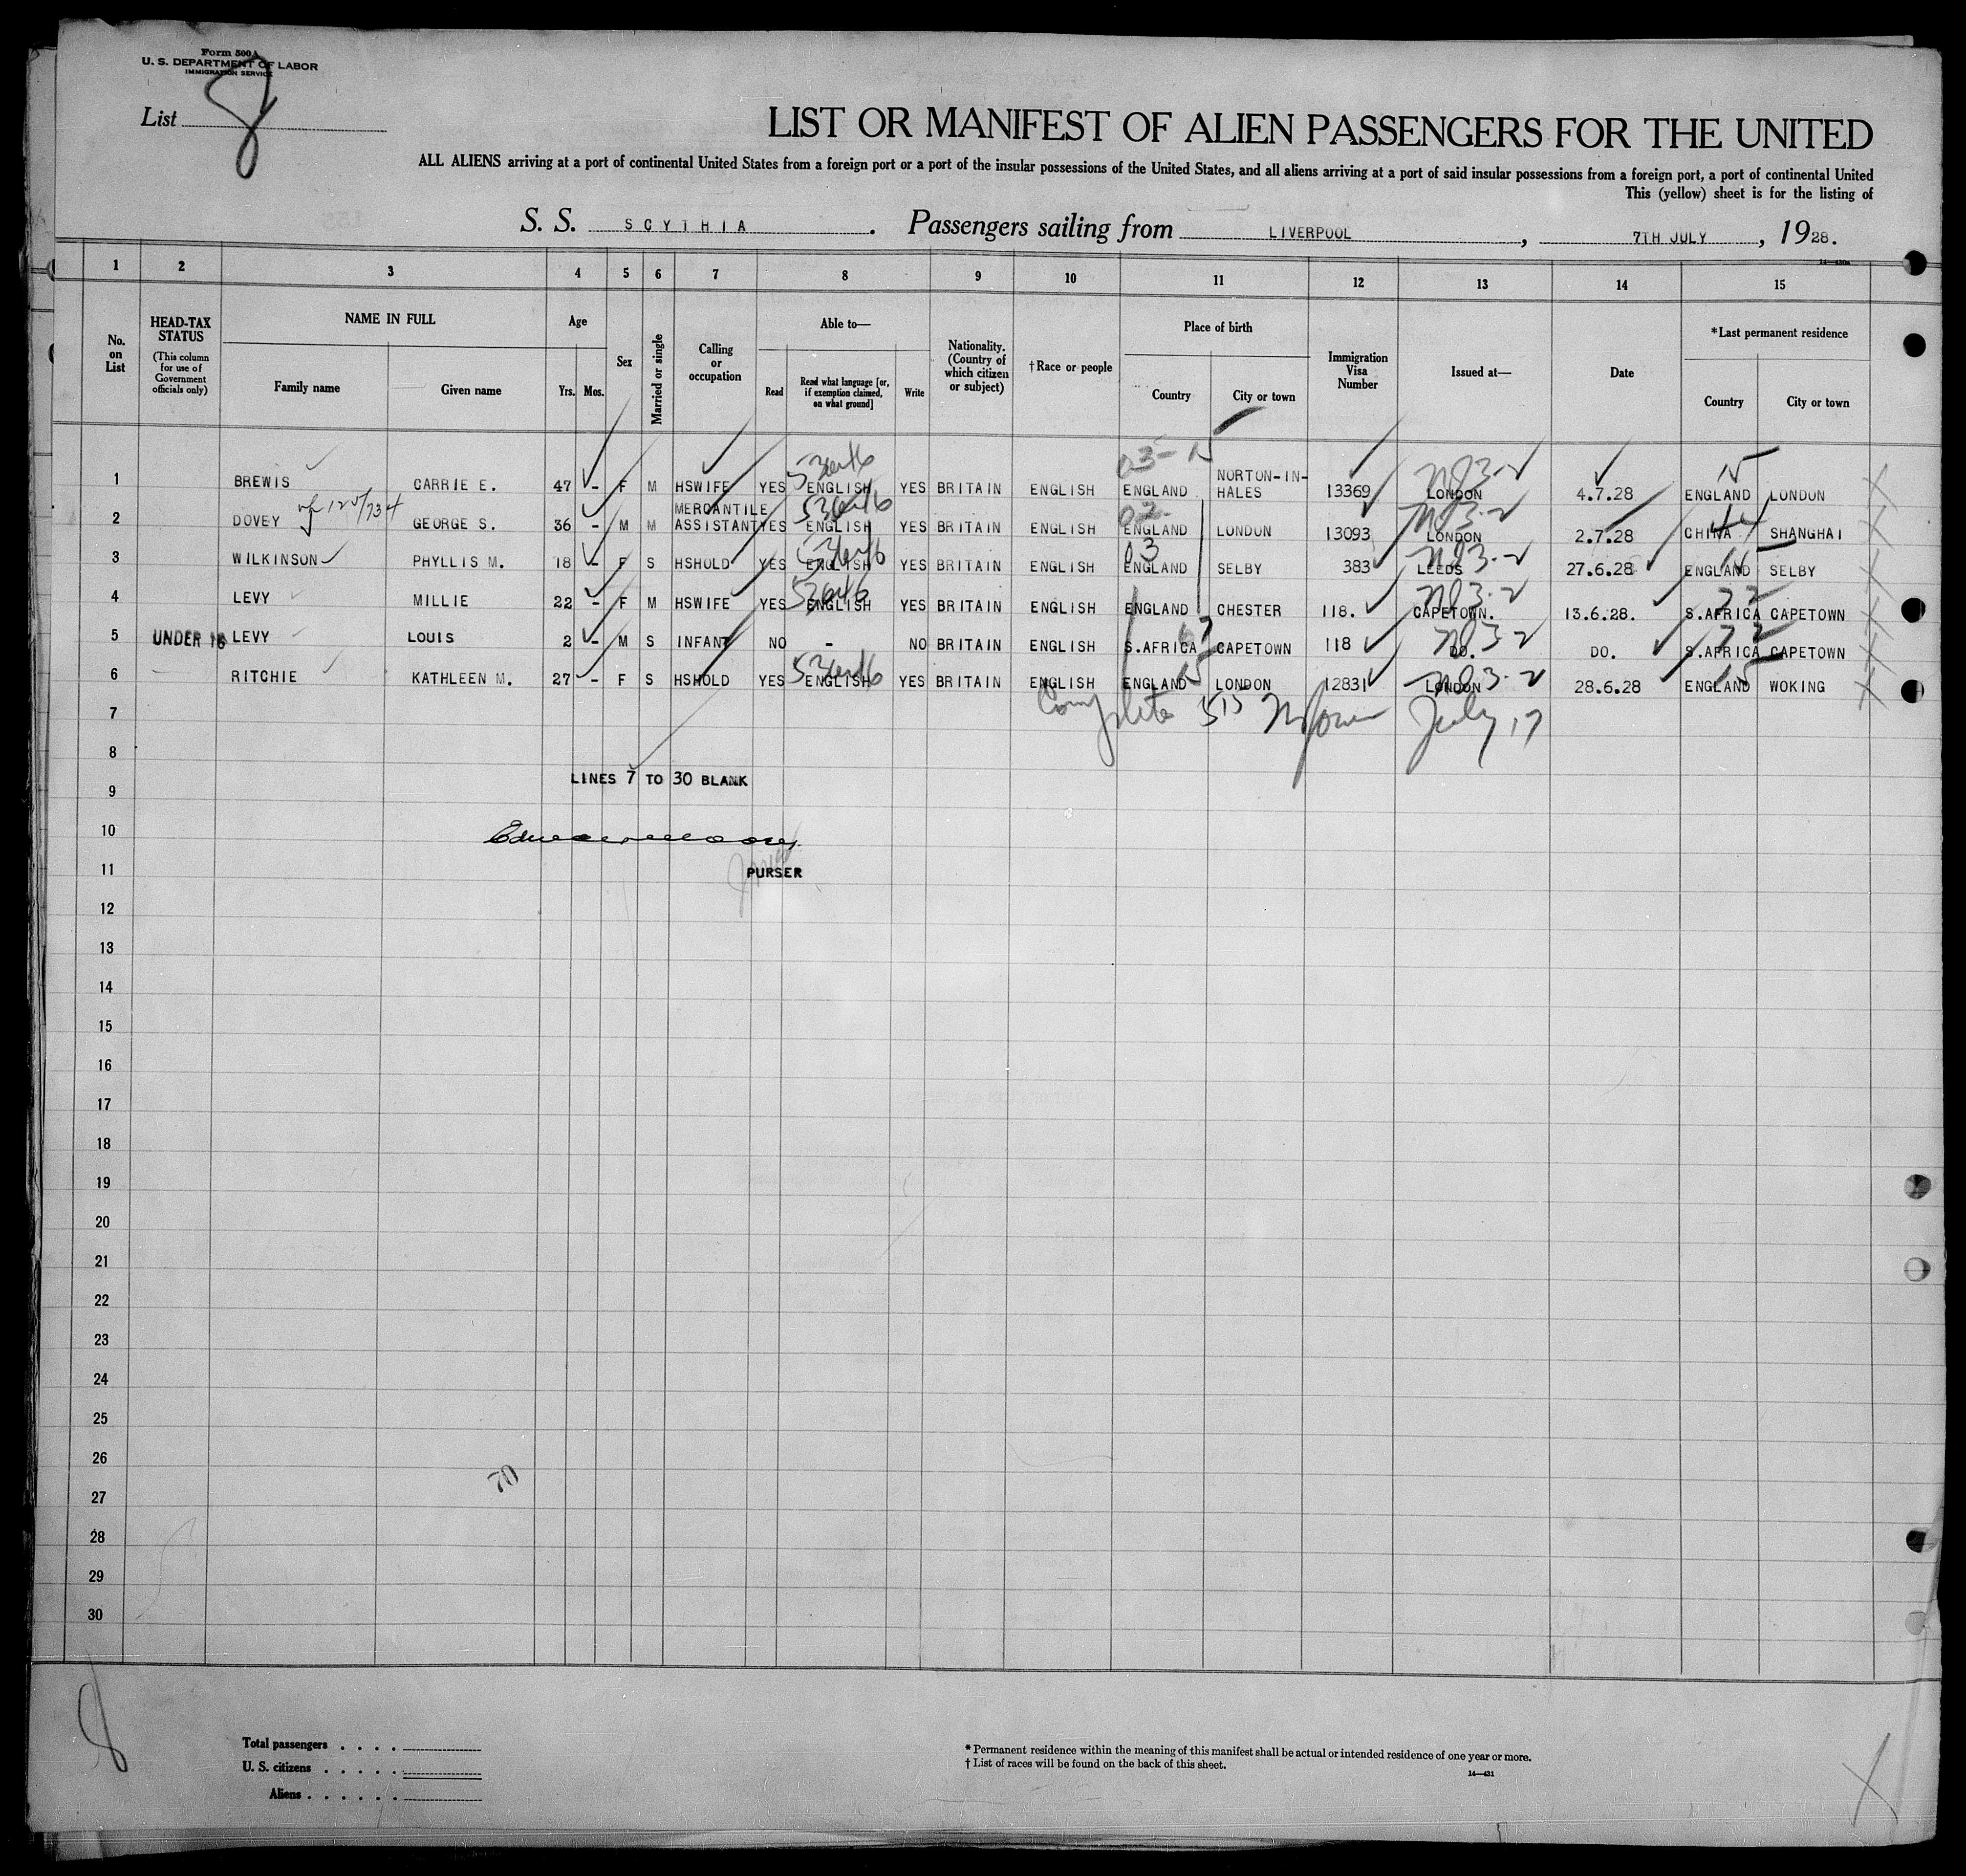 Form 500A
U. S. DEPARTMENT OF LABOR
IMMIGRATION SERVICE
List 8
LIST OR MANIFEST OF ALIEN PASSENGERS FOR THE UNITED
ALL ALIENS arriving at a port of continental United States from a foreign port or a port of the insular possessions of the United States, and all aliens arriving at a port of said insular possessions from a foreign port, a port of continental United
This (yellow) sheet is for the listing of
S. S. SCYTHIA. Passengers sailing from LIVERPOOL, 7TH JULY, 1928.
1 2 3 4 5 6 7 8 9 10 11 12 13 14 15
No. on List
HEAD-TAX STATUS
(This column for use of Government officials only)
NAME IN FULL
Family name Given name
Age
Yrs. Mos.
Sex
Married or single
Calling or occupation
Able to—
Read
Read what language [or, if exemption claimed, on what ground]
Write
Nationality. (Country of which citizen or subject)
†Race or people
Place of birth
Country City or town
Immigration Visa Number
Issued at—
Date
*Last permanent residence
Country City or town
1 BREWIS CARRIE E. 47 - F M HSWIFE YES ENGLISH YES BRITAIN ENGLISH ENGLAND NORTON-IN-HALES 13369 LONDON 4.7.28 ENGLAND LONDON
2 DOVEY GEORGE S. 36 - M M MERCANTILE ASSISTANT YES ENGLISH YES BRITAIN ENGLISH ENGLAND LONDON 13093 LONDON 2.7.28 CHINA SHANGHAI
3 WILKINSON PHYLLIS M. 18 - F S HSHOLD YES ENGLISH YES BRITAIN ENGLISH ENGLAND SELBY 383 LEEDS 27.6.28 ENGLAND SELBY
4 LEVY MILLIE 22 - F M HSWIFE YES ENGLISH YES BRITAIN ENGLISH ENGLAND CHESTER 118. CAPETOWN. 13.6.28. S.AFRICA CAPETOWN
5 UNDER 16 LEVY LOUIS 2 - M S INFANT NO - NO BRITAIN ENGLISH S.AFRICA CAPETOWN 118 DO. DO. S.AFRICA CAPETOWN
6 RITCHIE KATHLEEN M. 27 - F S HSHOLD YES ENGLISH YES BRITAIN ENGLISH ENGLAND LONDON 12831 LONDON 28.6.28 ENGLAND WOKING
7 Complete 515 July 17
8
LINES 7 TO 30 BLANK
9
10
11 PURSER
12
13
14
15
16
17
18
19
20
21
22
23
24
25
26
70
27
28
29
30
8
Total passengers . . . .
U. S. citizens . . . . .
Aliens . . . . . .
* Permanent residence within the meaning of this manifest shall be actual or intended residence of one year or more.
† List of races will be found on the back of this sheet.
14—431